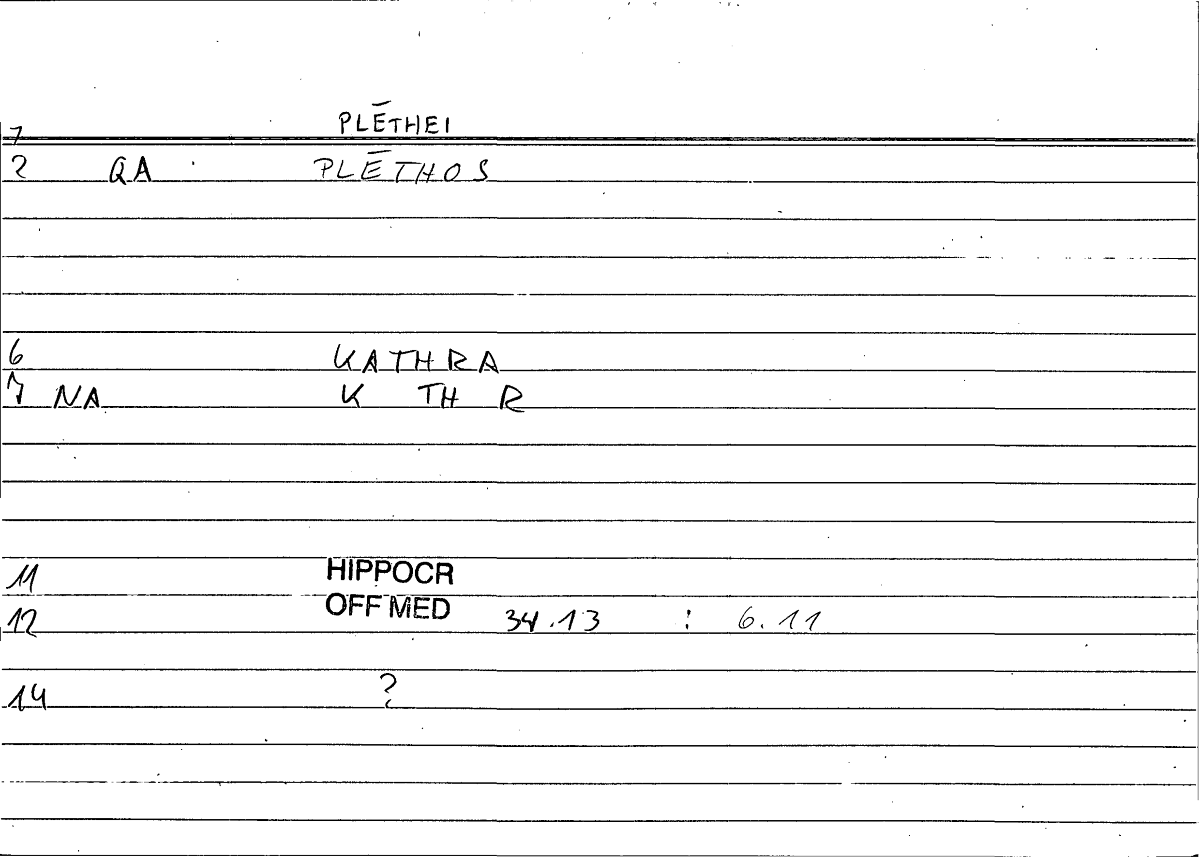 1 PLĒTHEI
2 QA PLĒTHOS
6 KATHRA
7 NA K TH R
11 HIPPOCR
12 OFF MED 34.13 : 6.11
14 ?